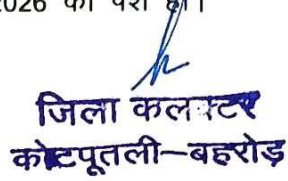 2026 को पेश हो।
जिला कलक्टर
कोटपूतली-बहरोड़